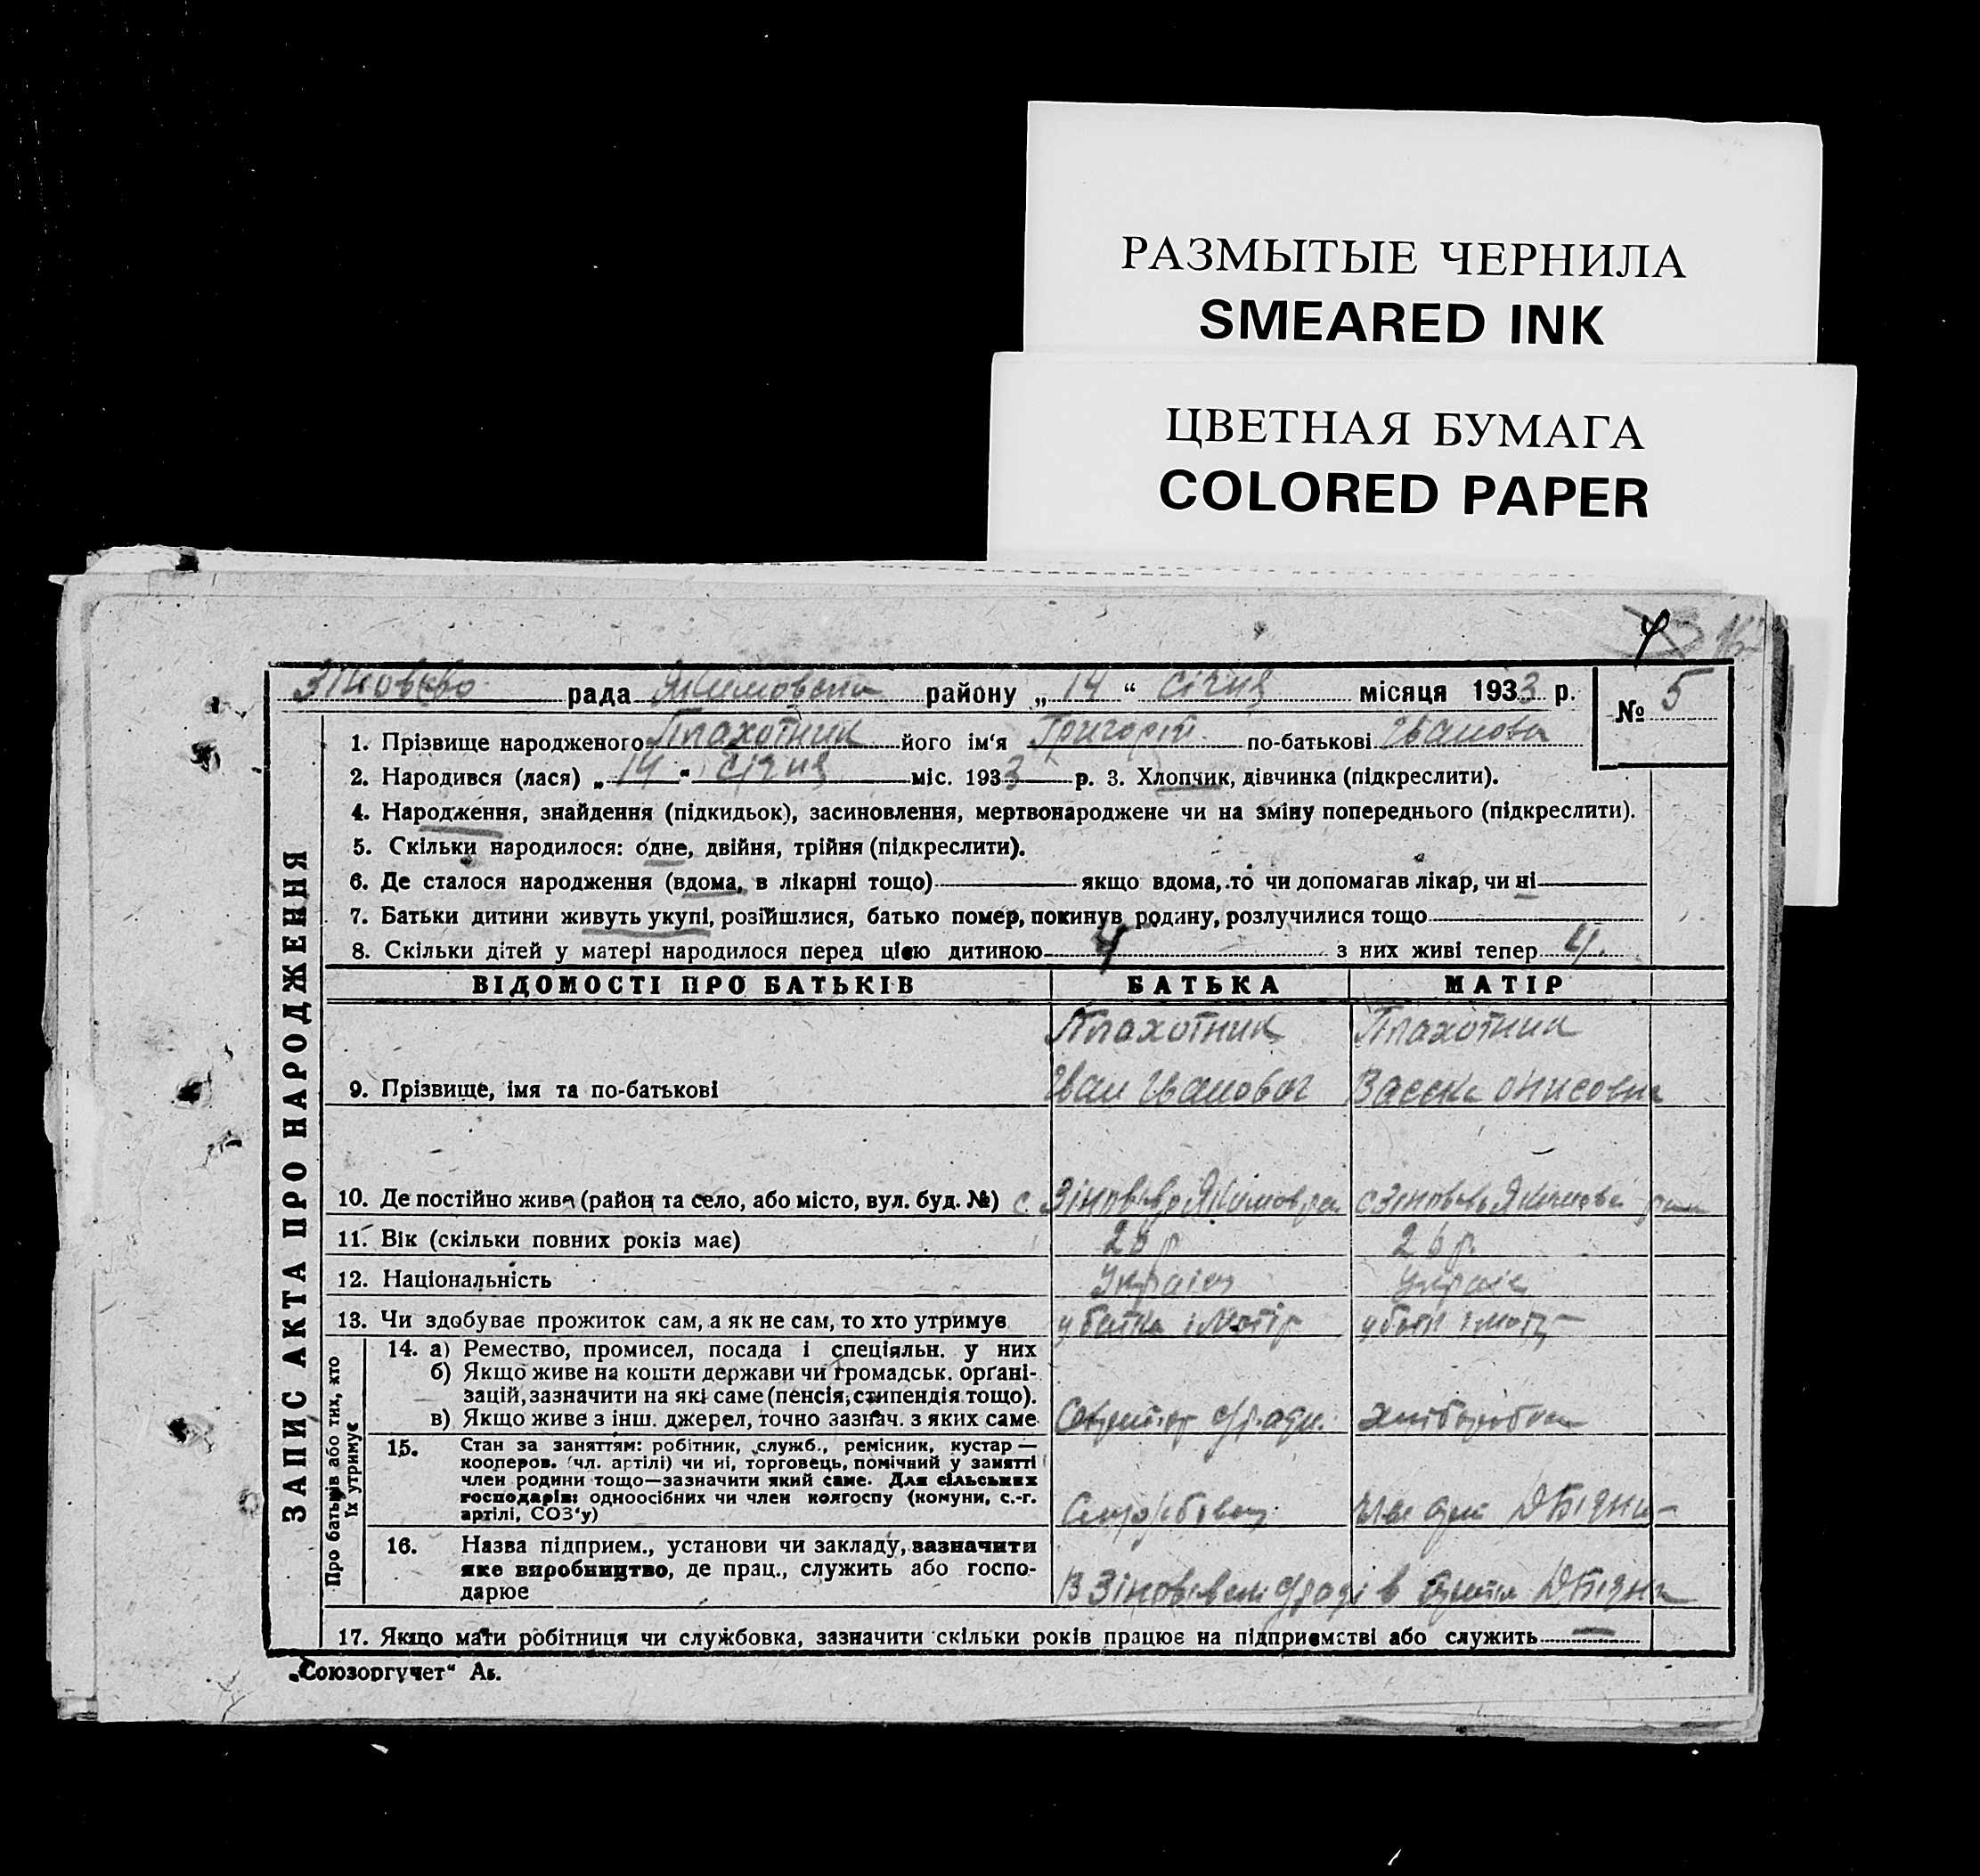 РАЗМЫТЫЕ ЧЕРНИЛА
SMEARED INK
ЦВЕТНАЯ БУМАГА
COLORED PAPER
рада Якимовски району „ 14 “ січня місяця 1933 р.
№ 5
ЗАПИС АКТА ПРО НАРОДЖЕННЯ
1. Прізвище народженого Плахотник його ім'я Григорій по-батькові Іванова
2. Народився (лася) „ 14 “ січня міс. 1933 р. 3. Хлопчик, дівчинка (підкреслити).
4. Народження, знайдення (підкидьок), засиновлення, мертвонароджене чи на зміну попереднього (підкреслити).
5. Скільки народилося: одне, двійня, трійня (підкреслити).
6. Де сталося народження (вдома, в лікарні тощо) якщо вдома, то чи допомагав лікар, чи ні
7. Батьки дитини живуть укупі, розійшлися, батько помер, покинув родину, розлучилися тощо
8. Скільки дітей у матері народилося перед цією дитиною 4 з них живі тепер 4.
ВІДОМОСТІ ПРО БАТЬКІВ БАТЬКА МАТІР
Плахотник Плахотник
9. Прізвище, імя та по-батькові Іван Іванович Васска Онисовна
10. Де постійно живе (район та село, або місто, вул. буд. №) с.
11. Вік (скільки повних років має) 26 р 26 р.
12. Національність Україн Україн
13. Чи здобуває прожиток сам, а як не сам, то хто утримує у батка і матір
Про батьків або тих, хто їх утримує
14. а) Ремество, промисел, посада і спеціяльн. у них
б) Якщо живе на кошти держави чи громадськ. орґані-
зацій, зазначити на які саме (пенсія, стипендія тощо).
в) Якщо живе з інш. джерел, точно зазнач. з яких саме
15. Стан за заняттям: робітник, служб., ремісник, кустар —
кооперов. (чл. артілі) чи ні, торговець, помічний у занятті
член родини тощо—зазначити який саме. Для сільських
господарів: одноосібних чи член колгоспу (комуни, с.-г.
артілі, СОЗ'у)
16. Назва підприєм., установи чи закладу, зазначити
яке виробництво, де прац., служить або госпо-
дарює
17. Якщо мати робітниця чи службовка, зазначити скільки років працює на підприємстві або служить —
„Союзоргучет“ Ав.